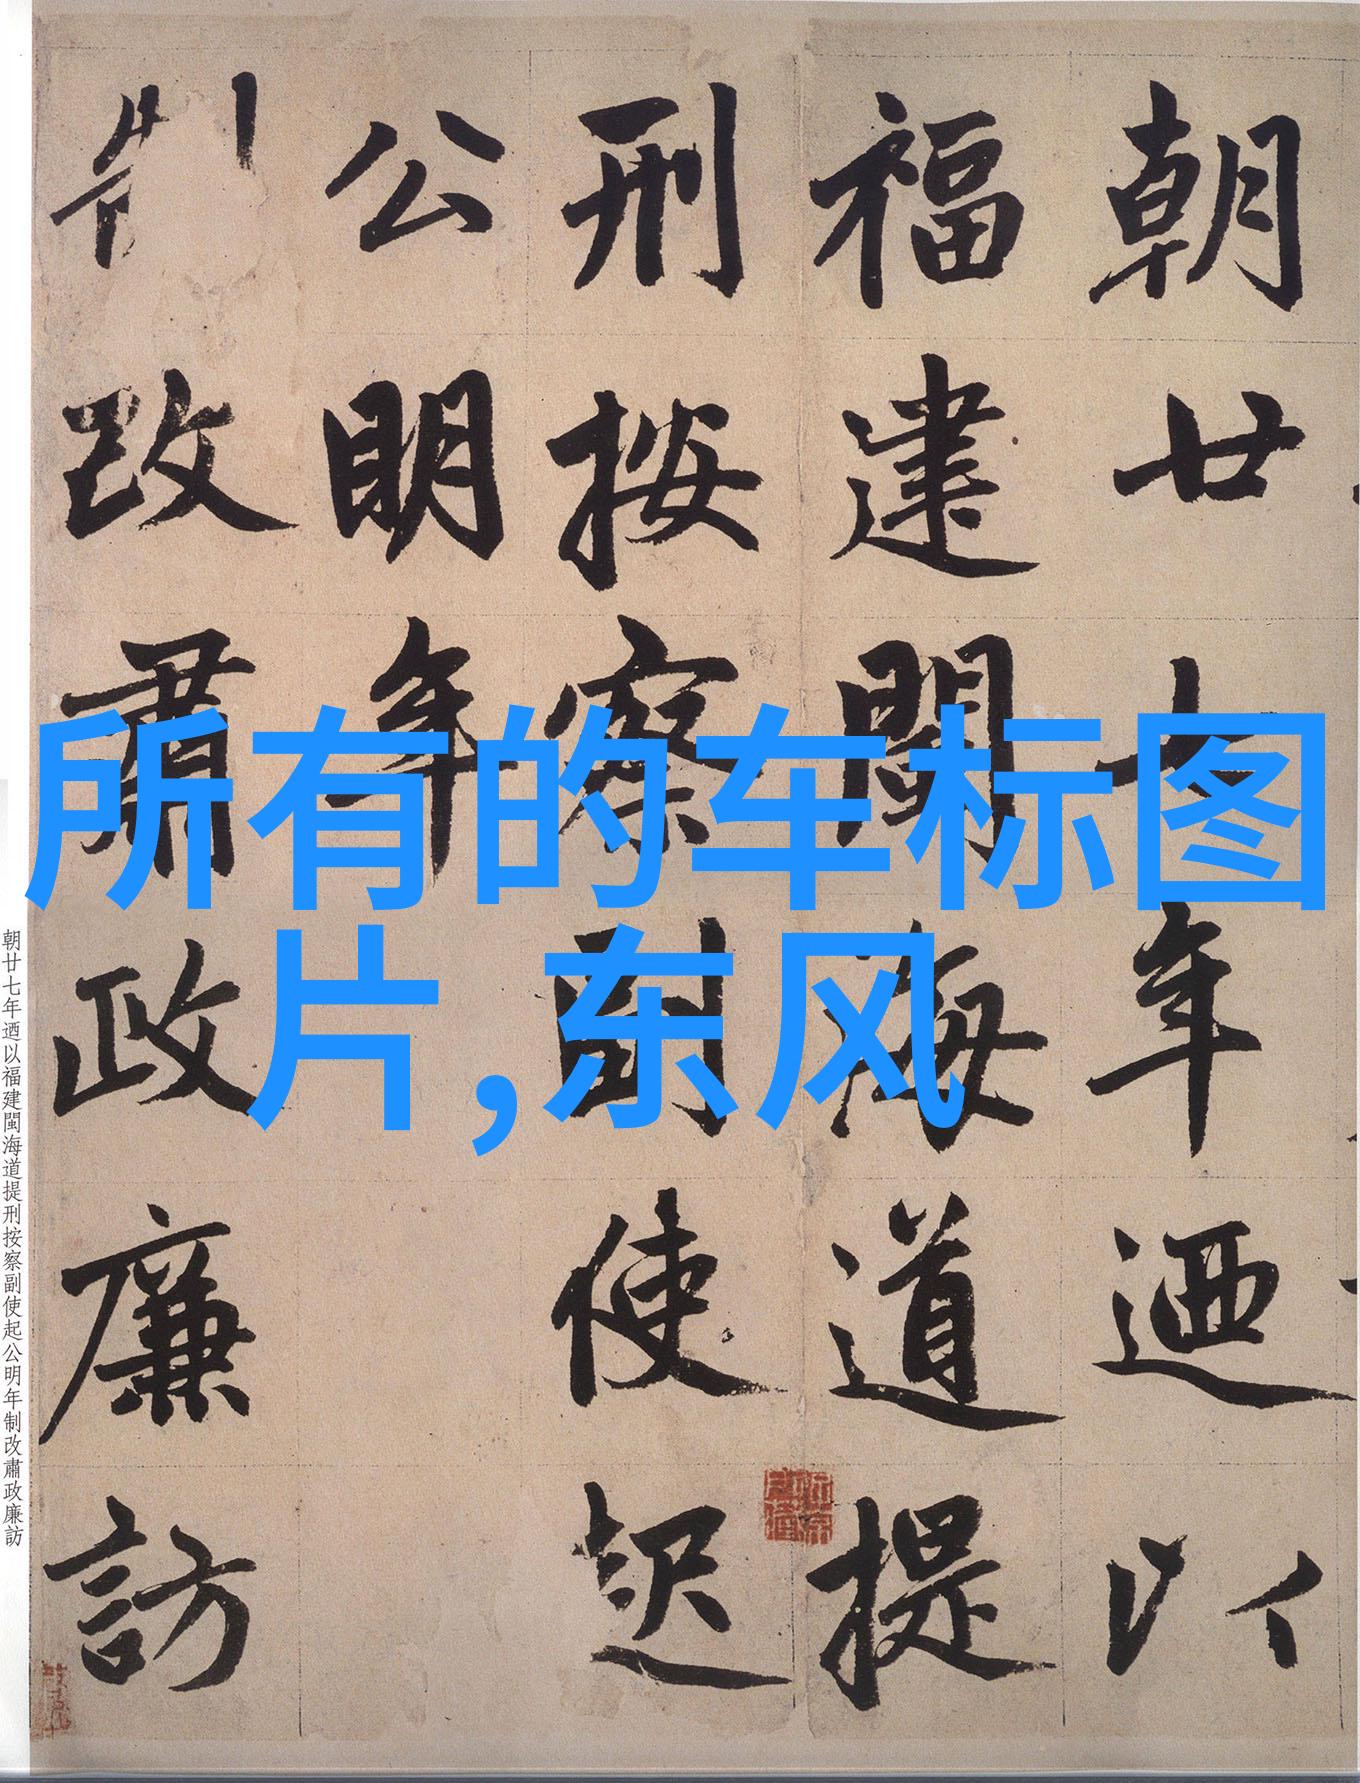 朝廿七年迺以
福建閩海道提
刑按察副使起
公明年
制改肅政廉訪
所有的车标图
片,东风
朝廿七年迺以福建閩海道提刑按察副使起公明年制改肅政廉訪